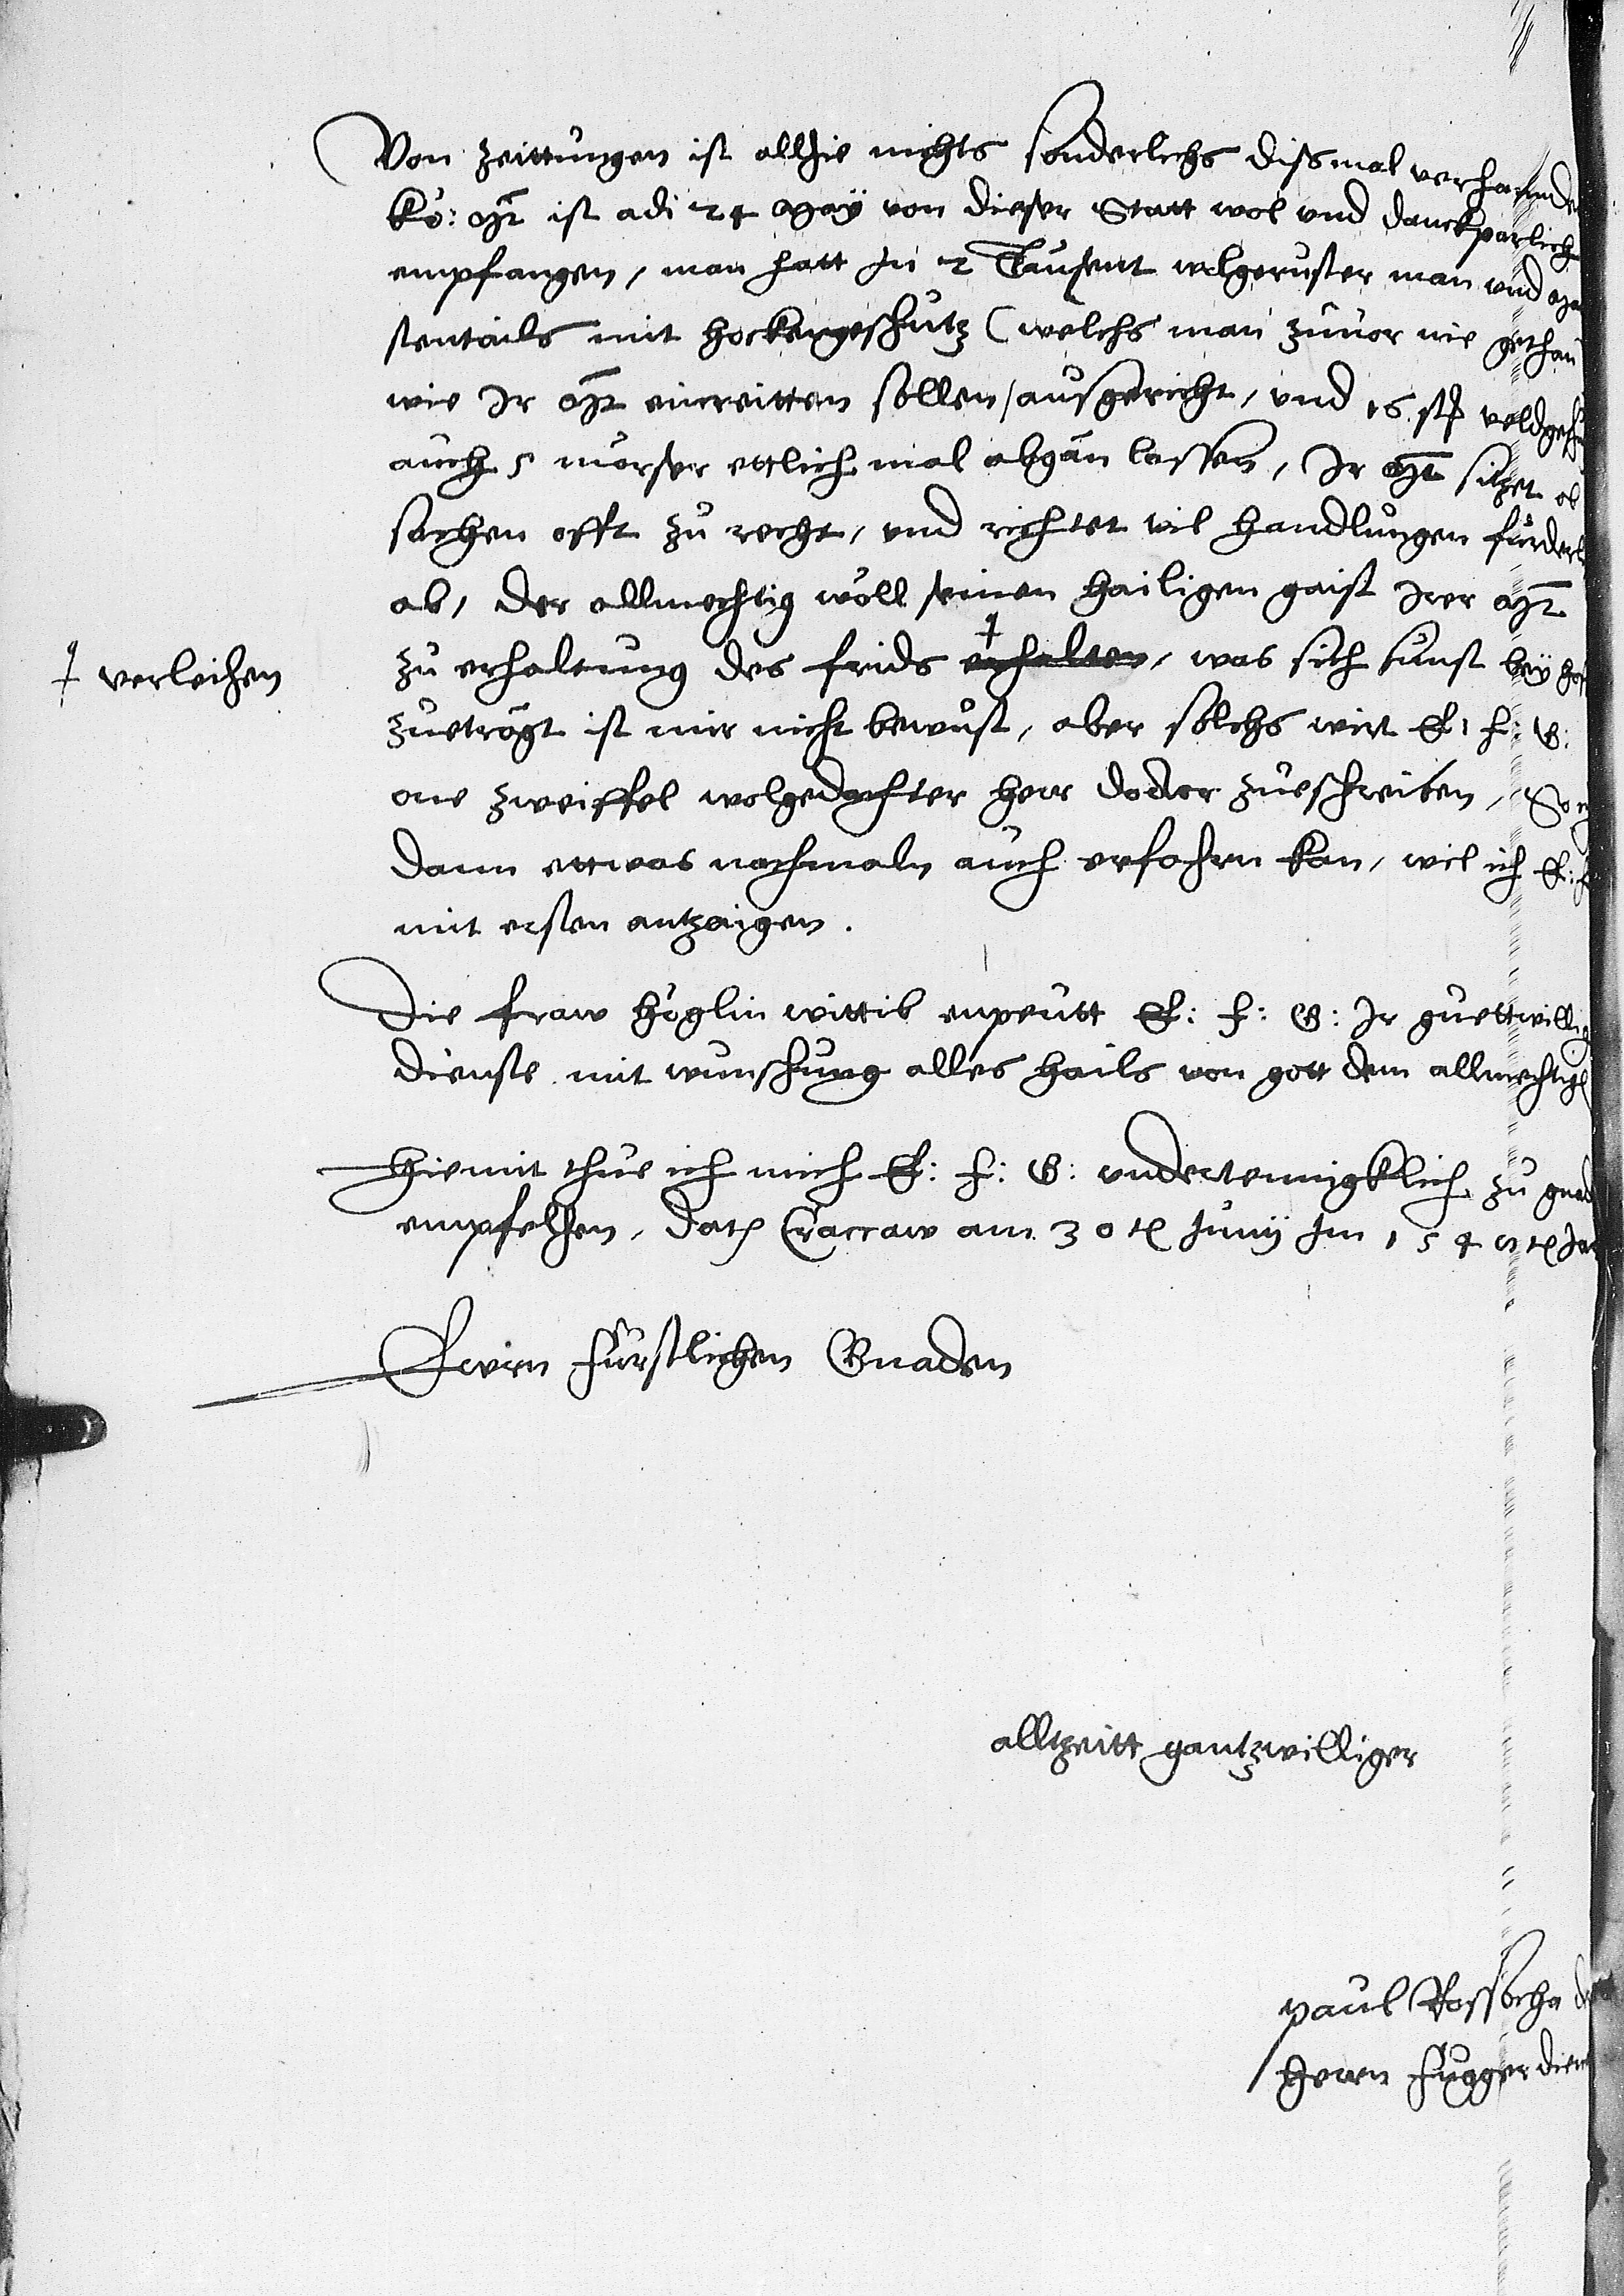 Von zeittungen ist allhie nichts sonderlichs dissmal verhannde
kö: Mt ist adi 24 May von dieser Statt wol und danckparlich
empfangen, man hatt In 2 Tausent wolgeruster man und
stentails mit hockengeschutz (welchs man zuuor nie gethan
wie Ir Mt einreitten sollen / ausgericht, und 16 st veldgesch
auch 5 mörser ettlich mal abgan lassen, Ir Mt sitzet al
sachen offt zu recht, und richtet vil handlungen fürderl
ab, der allmechtig wöll seinen hailigen gaist Irer Mt
zu erhaltung des frids erhalten, was sich sunst bey hof
† verleihen
zuetregt ist mir nicht bewust, aber solchs wirt E: f: G:
one zweiffel wolgedachter herr doctor zueschreiben, So
dann ettwas nachmaln auch erfahrn kan, wil ich E: f
mit ersten antzaigen.
Die fraw höglin wittib enpeutt E: f: G: Ir guettwillig
dienste mit wunschung alles hails von gott dem allmechtigen
Hiemit thue ich mich E: f: G: undertennigklich zu gnad
empfelhen, Datum Craccaw am 30ten Junij Im 154 ten Jar
Ewrn fürstlichen Gnaden
alltzeitt gantzwilliger
paul Rossocha d
Herrn fugger dien